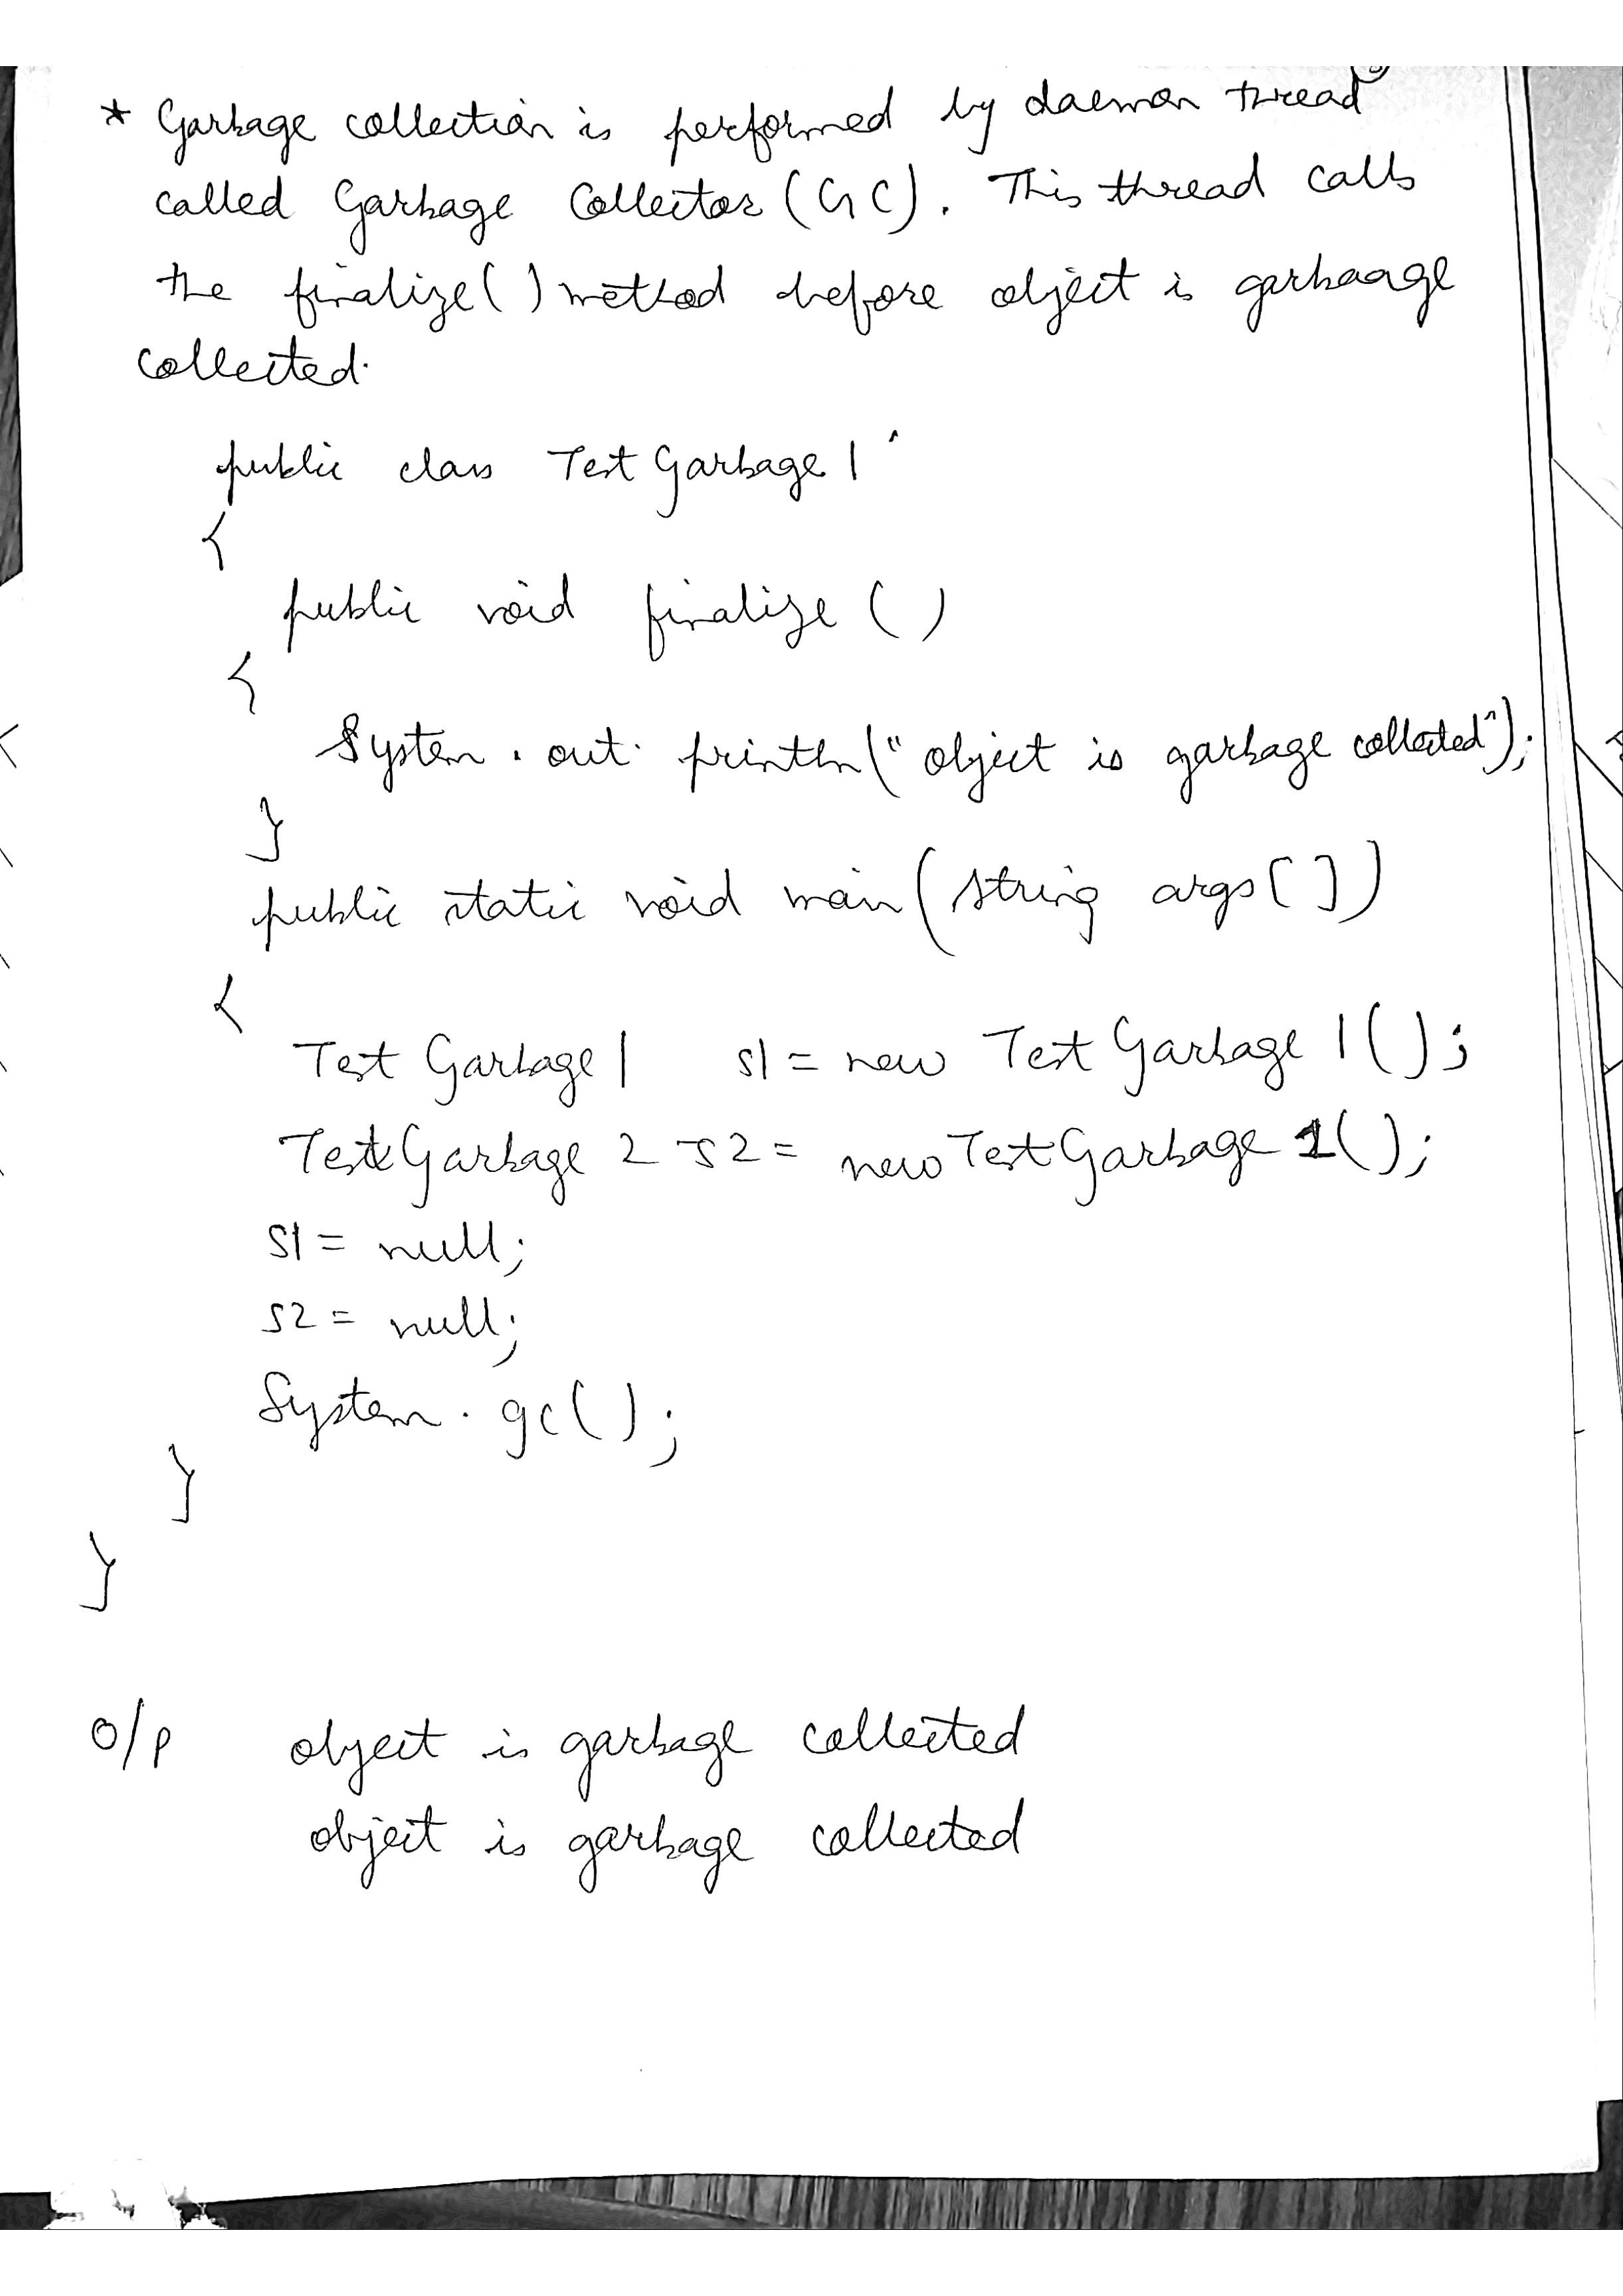 * Garbage collection is performed by daemon thread
called Garbage Collector (GC). This thread calls
the finalize() method before object is garbaage
collected.
public class TestGarbage1
{
public void finalize ()
{
System.out.println("object is garbage collected");
}
public static void main(string args[])
{
TestGarbage1 s1 = new TestGarbage1();
TestGarbage2 s2 = new TestGarbage1();
s1 = null;
s2 = null;
System.gc();
}
}
o/p object is garbage collected
object is garbage collected